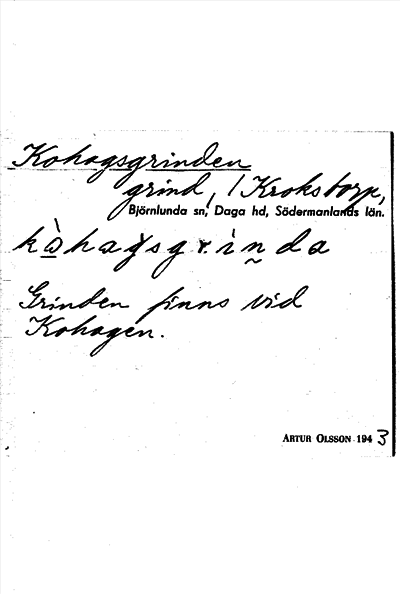 Kohagsgrinden
grind, / Krokstorp,
Björnlunda sn, Daga hd, Södermanlands län.
kòhagsgrìnda
Grinden finns vid
Kohagen.
ARTUR OLSSON 1943